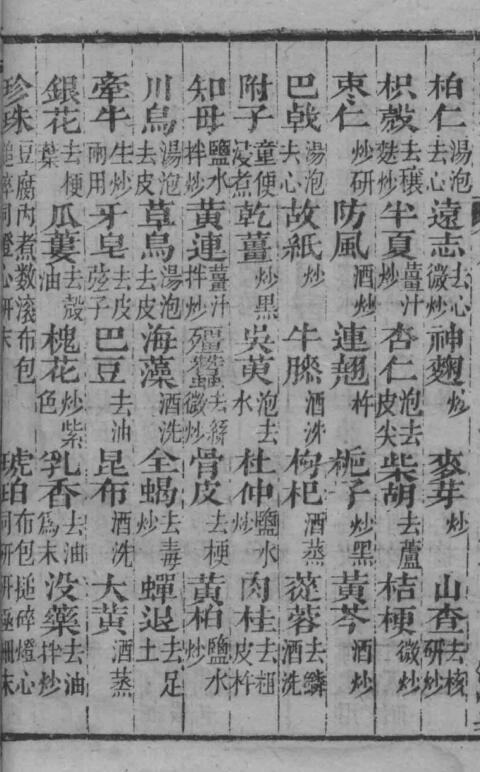 柏仁湯泡去心 遠志去心微炒 神麯炒 麥芽炒 山查去核研炒
枳殼去穰麩炒 半夏薑汁炒 杏仁泡去皮尖 柴胡去蘆 桔梗微炒
枣仁炒研 防風酒炒 連翹杵 栀子炒黑 黃芩酒炒
巴戟湯泡去心 故紙炒 牛膝酒洗 枸杞酒蒸 蓯蓉去鱗酒洗
附子童便浸煮 乾薑炒黑 吳萸泡去水 杜仲鹽水炒 肉桂去粗皮杵
知母鹽水拌炒 黃連薑汁拌炒 殭蠶去絲微炒 骨皮去梗 黃柏鹽水炒
川烏湯泡去皮 草烏湯泡去皮 海藻酒洗 全蝎去毒炒 蟬退去足土
牽牛生炒兩用 牙皂去皮弦子 巴豆去油 昆布酒洗 大黃酒蒸
銀花去梗葉 瓜蔞去殼油 槐花炒紫色 乳香去油為末 没藥去油拌炒
珍珠豆腐内煮数滚布包搥碎同燈心研末 琥珀布包搥碎燈心同研研極細末